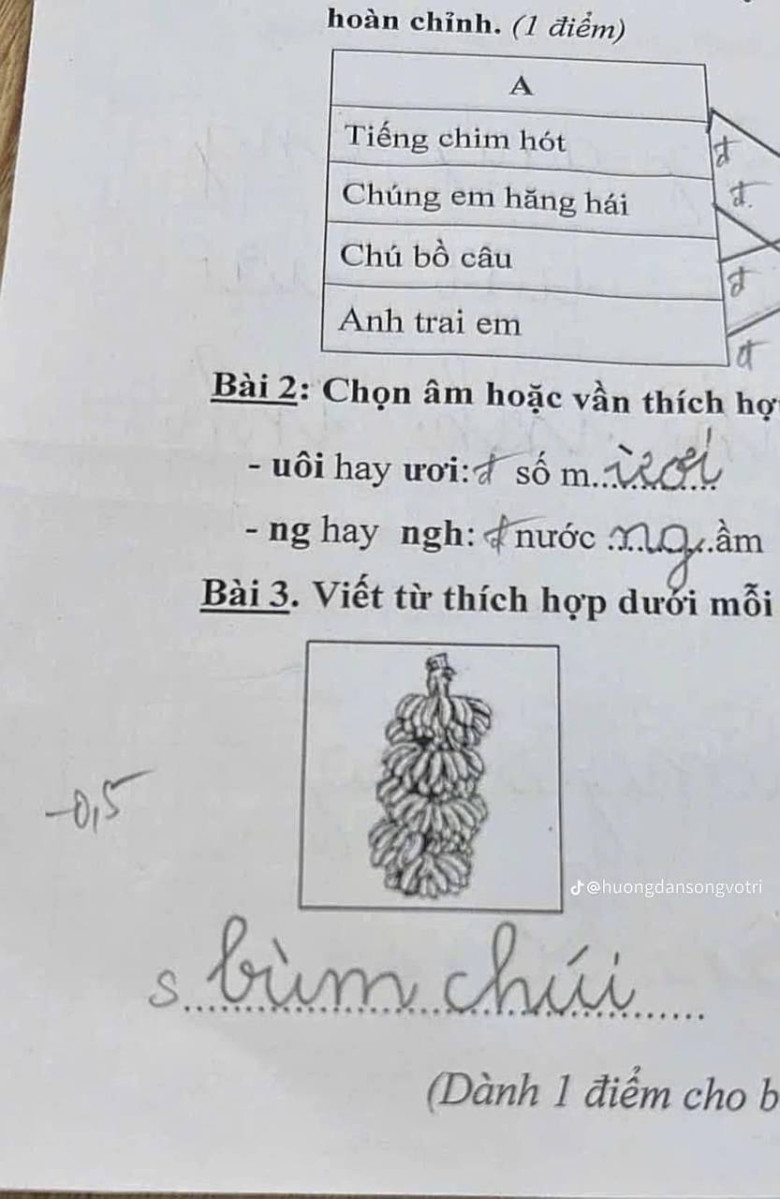 hoàn chỉnh. (1 điểm)
A
Tiếng chim hót
đ
Chúng em hăng hái
đ
Chú bồ câu
đ
Anh trai em
đ
Bài 2: Chọn âm hoặc vần thích hợ
- uôi hay ươi: đ số m...ười......
- ng hay ngh: đ nước ...ng...ầm
Bài 3. Viết từ thích hợp dưới mỗi
-0,5
@huongdansongvotri
s bùm chúi
(Dành 1 điểm cho b